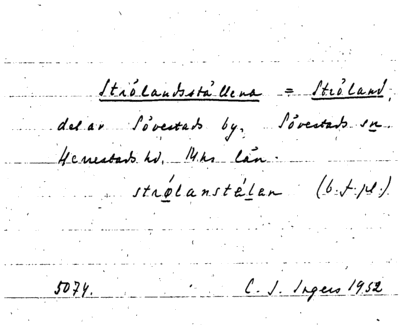 Strölandsställena = Ströland,
del av Sövestads by. Sövestads sn
Herrestads hd. Mhs län.
strǫlanstęlan (b.f.pl.)
5074. C. J. Ingers 1932